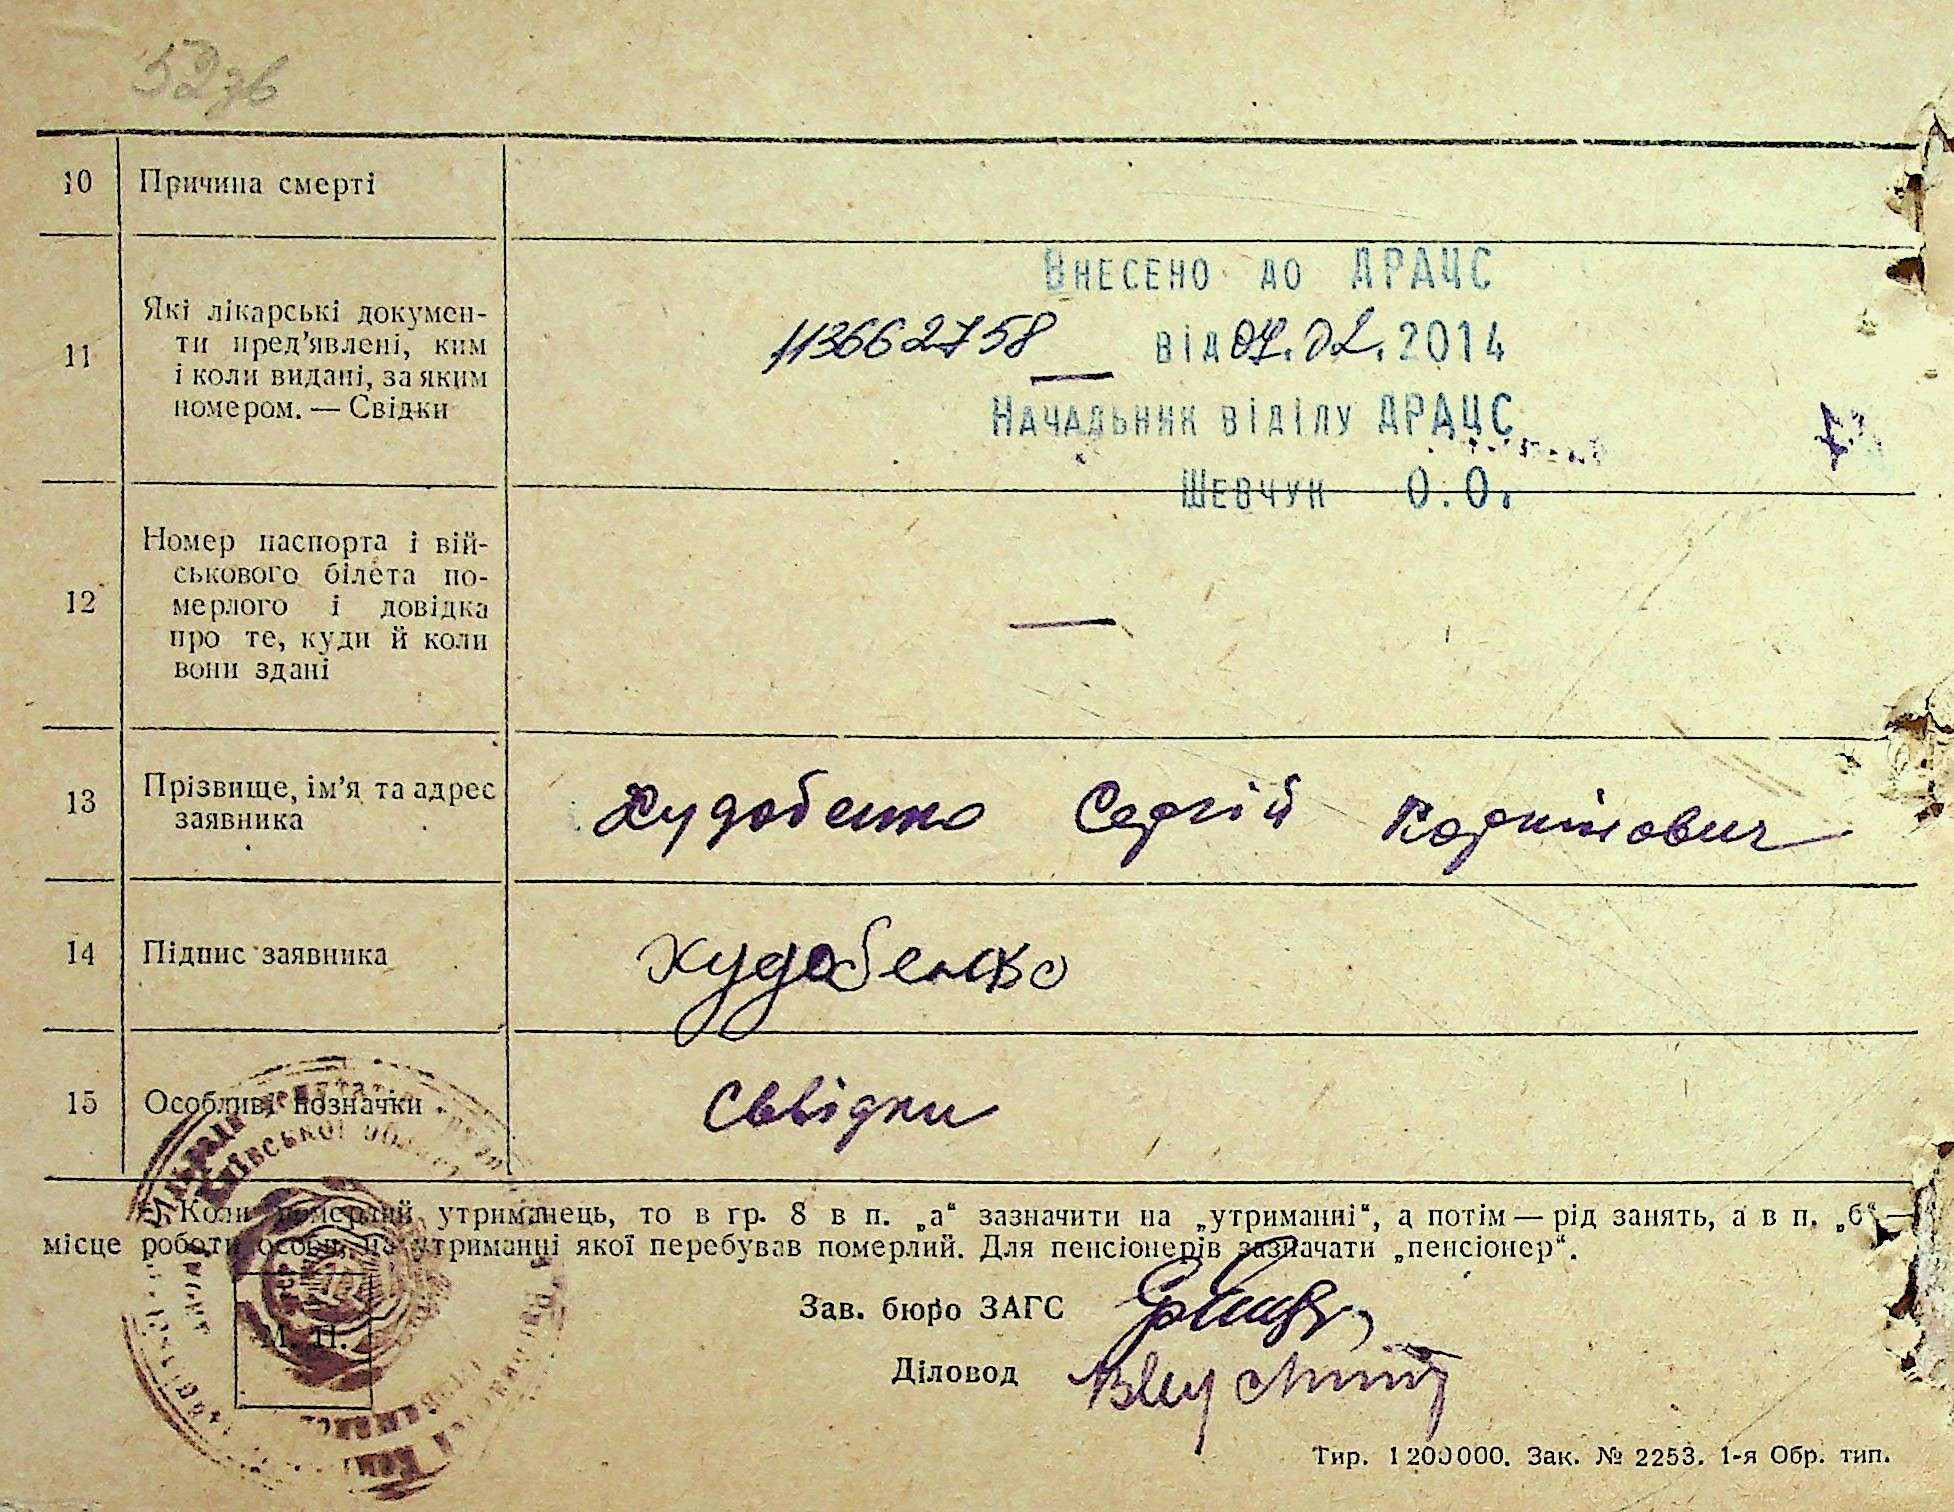 52зв
10 Причина смерті
Внесено до ДРАЦС
11 Які лікарські докумен-
ти пред'явлені, ким
і коли видані, за яким
номером. — Свідки
113662758 від 2014
Начальник відділу ДРАЦС
Шевчук О.О.
12 Номер паспорта і вій-
ськового білета по-
мерлого і довідка
про те, куди й коли
вони здані
—
13 Прізвище, ім'я та адрес
заявника
Худобенко Сергій Корнійович
14 Підпис заявника
Худобенко
15 Особливі позначки
Свідки
Київської області
Коли померлий утриманець, то в гр. 8 в п. „а“ зазначити на „утриманні“, а потім — рід занять, а в п. „б“ —
місце роботи особи, на утриманні якої перебував померлий. Для пенсіонерів зазначати „пенсіонер“.
М. П.
Зав. бюро ЗАГС
Діловод
Тир. 1200000. Зак. № 2253. 1-я Обр. тип.